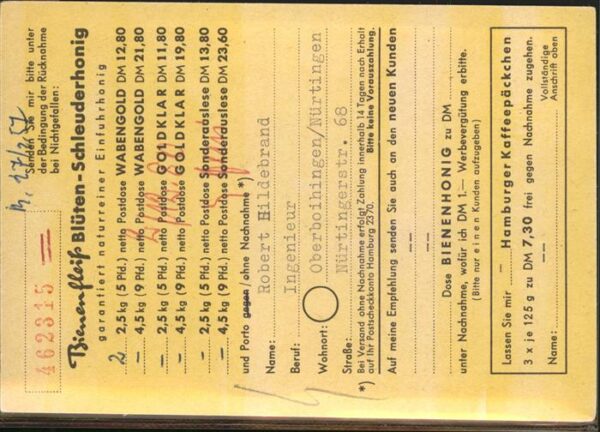 462315
Senden Sie mir bitte unter
der Bedingung der Rücknahme
bei Nichtgefallen:
Bienenfleiß Blüten-Schleuderhonig
garantiert naturreiner Einfuhrhonig
2 2,5 kg (5 Pfd.) netto Postdose WABENGOLD DM 12,80
— 4,5 kg (9 Pfd.) netto Postdose WABENGOLD DM 21,80
— 2,5 kg (5 Pfd.) netto Postdose GOLDKLAR DM 11,80
— 4,5 kg (9 Pfd.) netto Postdose GOLDKLAR DM 19,80
— 2,5 kg (5 Pfd.) netto Postdose Sonderauslese DM 13,80
— 4,5 kg (9 Pfd.) netto Postdose Sonderauslese DM 23,60
und Porto gegen/ohne Nachnahme *)
Name: Robert Hildebrand
Beruf: Ingenieur
Wohnort: Oberboihingen/Nürtingen
Straße: Nürtingerstr. 68
*) Bei Versand ohne Nachnahme erfolgt Zahlung innerhalb 14 Tagen nach Erhalt
auf Ihr Postscheckkonto Hamburg 2370. Bitte keine Vorauszahlung.
Auf meine Empfehlung senden Sie auch an den neuen Kunden
Dose BIENENHONIG zu DM
unter Nachnahme, wofür ich DM 1.— Werbevergütung erbitte.
(Bitte nur einen Kunden aufzugeben)
Lassen Sie mir — Hamburger Kaffeepäckchen
3 x je 125 g zu DM 7,30 frei gegen Nachnahme zugehen.
Name:
Vollständige
Anschrift oben